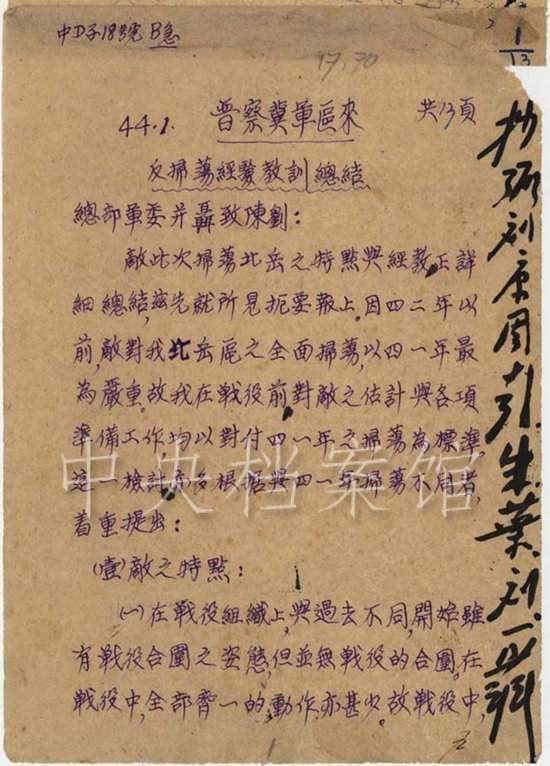 中D子18號 B急
1/13
17,70
44.1. 晋察冀軍區來 共13頁
反掃蕩經驗教訓總結
總部軍委并聶致陳劉:
敵此次掃蕩北岳之特點與經教,正詳
細總結,兹先就所見扼要報上。因四二年以
前,敵對我北岳區之全面掃蕩,以四一年最
為嚴重。故我在戰役前,對敵之估計與各項
準備工作,均以對付四一年之掃蕩為標準。
這一檢討亦多根据與四一年掃蕩不同者,
着重提出:
(壹)敵之特點:
(一)在戰役組織上,與過去不同,開始雖
有戰役合圍之姿態,但並無戰役的合圍。在
戰役中,全部齊一的動作亦甚少。故戰役中,
中央档案馆